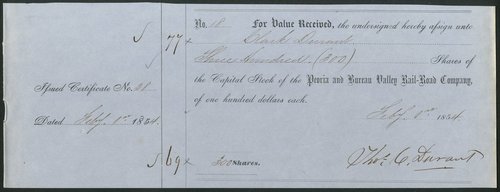 No. 18 For Value Received, the undersigned hereby assign unto
77 x Clark Durant
Three hundred (300) Shares of
Issued Certificate No. the Capital Stock of the Peoria and Bureau Valley Rail-Road Company,
of one hundred dollars each.
Dated Feby. 1st 1854 Feby. 1st 1854.
69 x 300 Shares. Thos. C. Durant